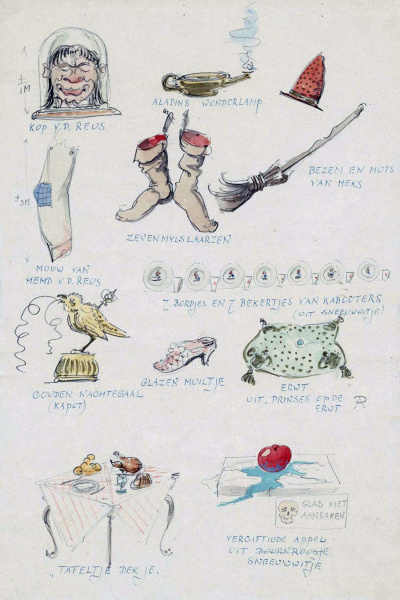 ± 1M
KOP V.D. REUS
ALADINS WONDERLAMP
BEZEM EN MUTS
VAN HEKS
± 3M
ZEVENMYLSLAARZEN
MOUW VAN
HEMD V.D. REUS
7 BORDJES EN 7 BEKERTJES VAN KABOUTERS
(UIT SNEEUWWITJE)
GOUDEN NACHTEGAAL
(KAPUT)
GLAZEN MUILTJE
ERWT
UIT. PRINSES OP DE
ERWT
GLAS NIET
AANRAKEN
"TAFELTJE DEK JE.
VERGIFTIGDE APPEL
UIT DOORNROOSJE
SNEEUWWITJE